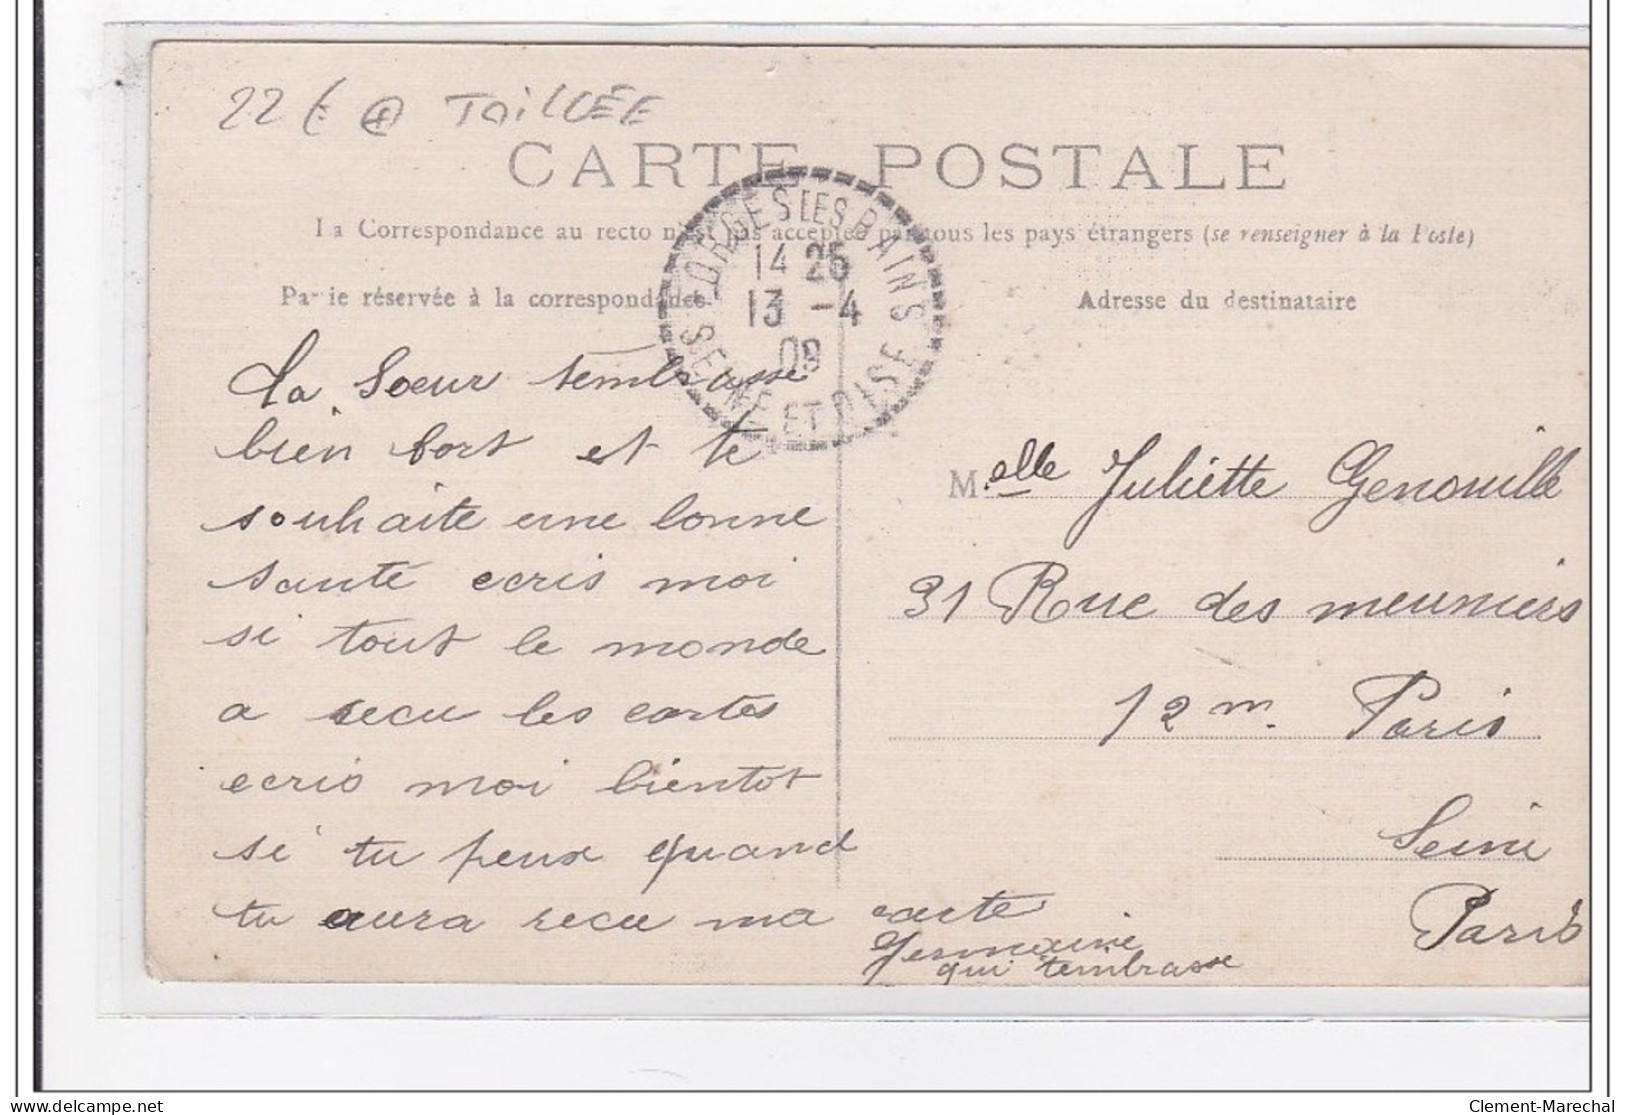 22 € ⊕ TAiLLÉE
CARTE POSTALE
La Correspondance au recto n'est pas acceptée par tous les pays étrangers (se renseigner à la Poste)
Partie réservée à la correspondance
Adresse du destinataire
FORGES LES BAINS
14 25
13 -4
09
SEINE ET OISE
Ta Soeur t'embrasse
bien fort et te
souhaite une bonne
santé ecris moi
si tout le monde
a recu les cartes
ecris moi bientot
si tu peux quand
tu aura recu ma carte
Germaine
qui t'embrasse
Melle Juliette Genouille
31 Rue des meuniers
12 m. Paris
Seine
Paris
Clement-Marechal